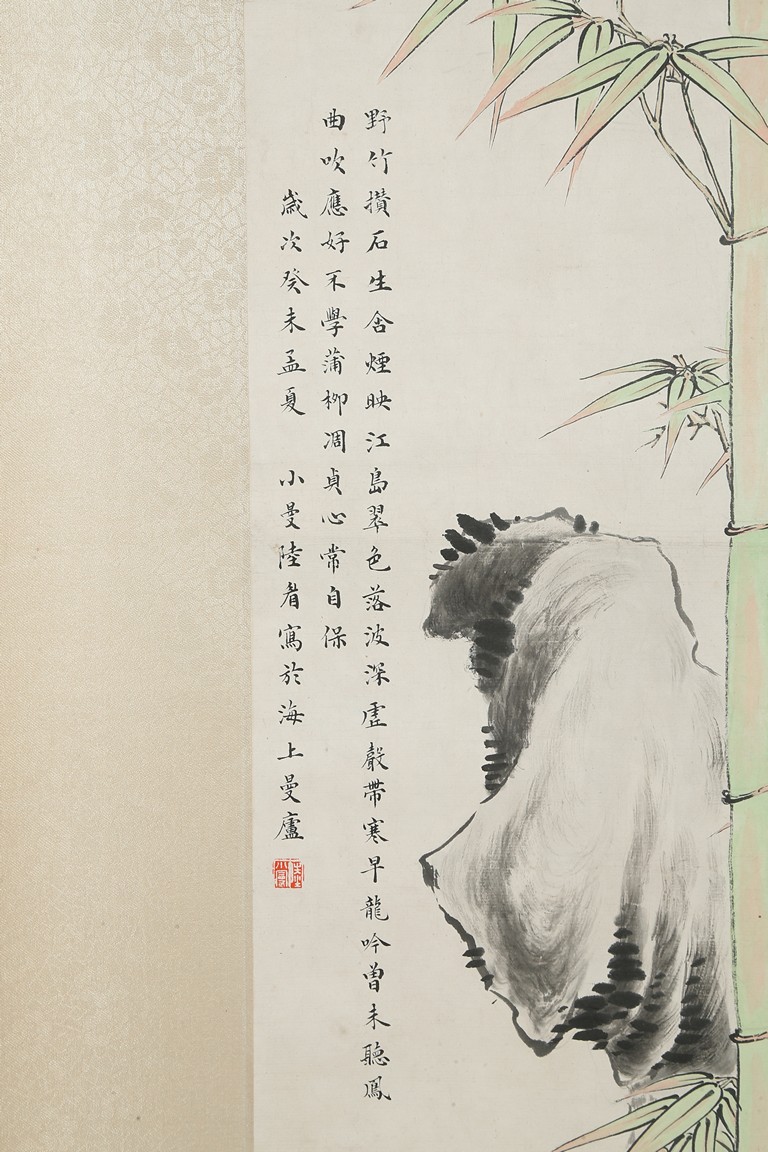 野竹攢石生含煙映江島翠色落波深虛聲帶寒早龍吟曾未聽鳳
曲吹應好不學蒲柳凋貞心常自保
歲次癸未孟夏 小曼陸眉寫於海上曼廬